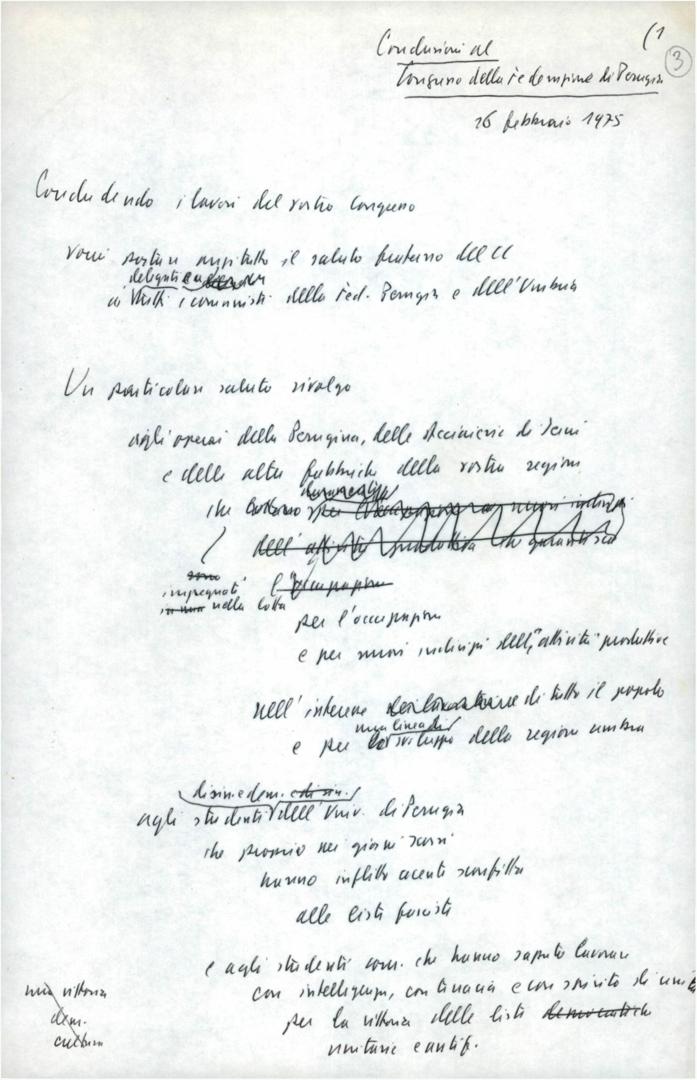 (1
3
Conclusioni al
Congresso della Federazione di Perugia
26 febbraio 1975
Concludendo i lavori del vostro Congresso
vorrei portare anzitutto il saluto fraterno del CC
delegati e a
a tutti i comunisti della Fed. Perugia e dell'Umbria
Un particolare saluto rivolgo
agli operai della Perugina, delle Acciaierie di Terni
e delle altre fabbriche della vostra regione
che lottano per nuovi indirizzi
dell'attività produttiva che garantisca
sono
impegnati l'occupazione
nella lotta
per l'occupazione
e per nuovi indirizzi dell'"attività" produttiva
nell'interesse di tutto il popolo
una linea di
e per lo sviluppo della regione umbra
di sin. e dem. e di sin.
agli studenti dell'Univ. di Perugia
che proprio nei giorni scorsi
hanno inflitto cocente sconfitta
alle liste fasciste
e agli studenti com. che hanno saputo lavorare
con intelligenza, con tenacia e con spirito di unità
per la vittoria delle liste democratiche
unitarie e antif.
una vittoria
dem.
cultura